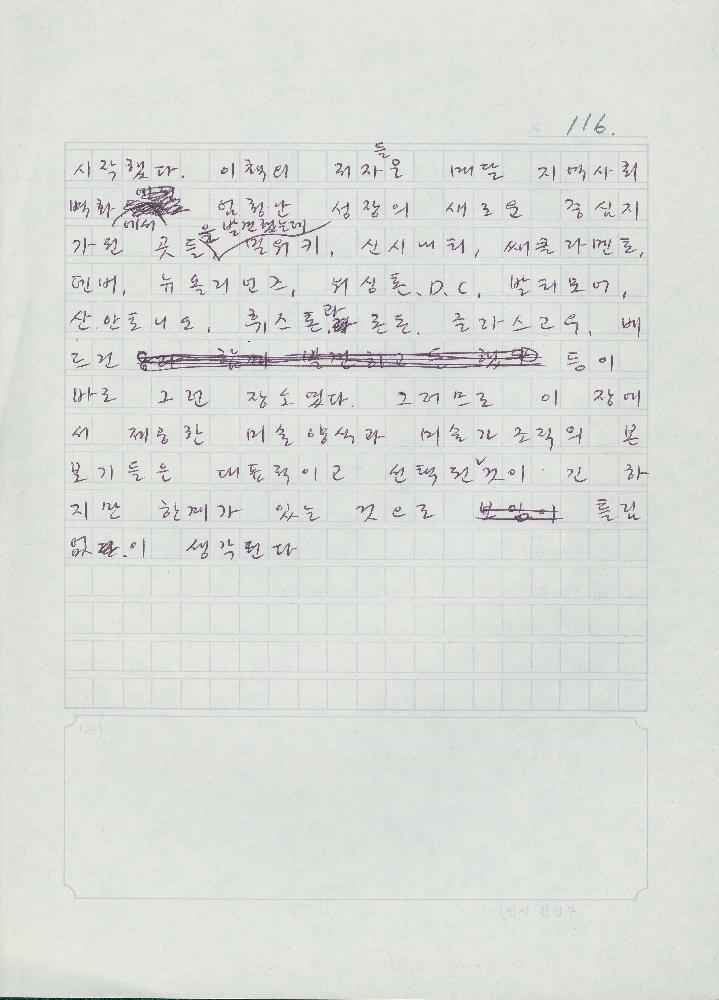 116.
시작했다. 이책의 저자들은 매달 지역사회
벽화에서 엄청난 성장의 새로운 중심지
가된 곳들을 발견했는데 밀워키, 신시내티, 쌔크라멘토,
덴버, 뉴올리언즈, 워싱톤.D.C, 발티모어,
산.안토니오, 휴스톤과 론돈. 글라스고우, 베
드런 등이
바로 그런 장소였다. 그러므로 이 장에
서 제공한 미술양식과 미술가 조직의 본
보기들은 대표적이고 선택된 것이 긴 하
지만 한계가 있는 것으로 틀림
없이 생각된다